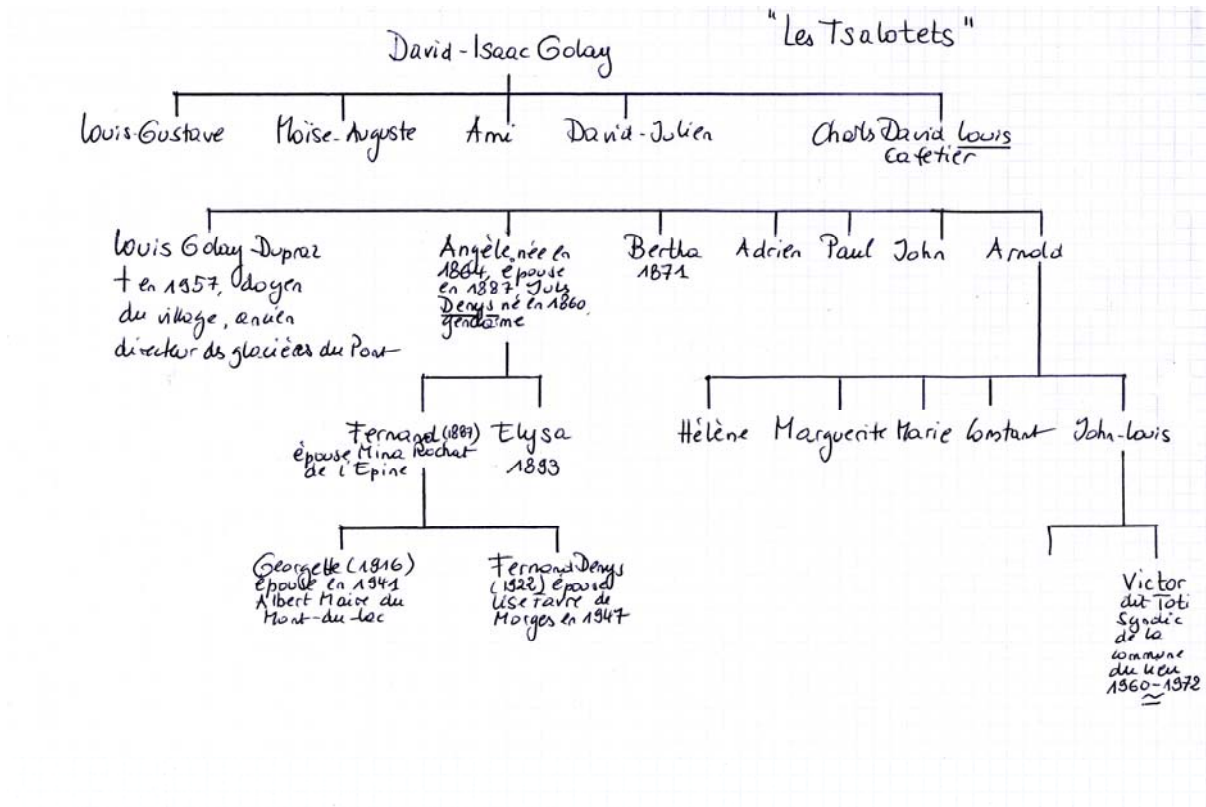 "Les Tsalotets"
David-Isaac Golay
Louis-Gustave
Moïse-Auguste
Ami
David-Julien
Charls David Louis
Cafetier
Louis Golay-Dupraz
† en 1957, doyen
du village, ancien
directeur ds glacières du Pont
Angèle, née en
1864, épouse
en 1887 Juls
Denys né en 1860
gendarme
Bertha
1871
Adrien
Paul
John
Arnold
Fernand (1887)
épouse Mina Rochat
de l'Epine
Elysa
1893
Hélène
Marguerite
Marie
Constant
John-Louis
Georgette (1916)
épouse en 1941
Albert Maire du
Mont-du-Lac
Fernand Denys
(1922) épouse
Lise Favre de
Morges en 1947
Victor
dit Toti
Syndic
de la
commune
du Lieu
1960-1972